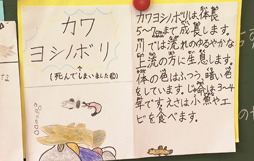 カワ
ヨシノボリ
(死んでしまいました)
カワヨシノボリは、体長
5〜6cmまで成長します。
川では流れのゆるやかな
上流の方に生息します。
体の色は、ふつう、暗い色
をしています。じゅ命は3〜4
年です。えさは小魚やエ
ビを食べます。